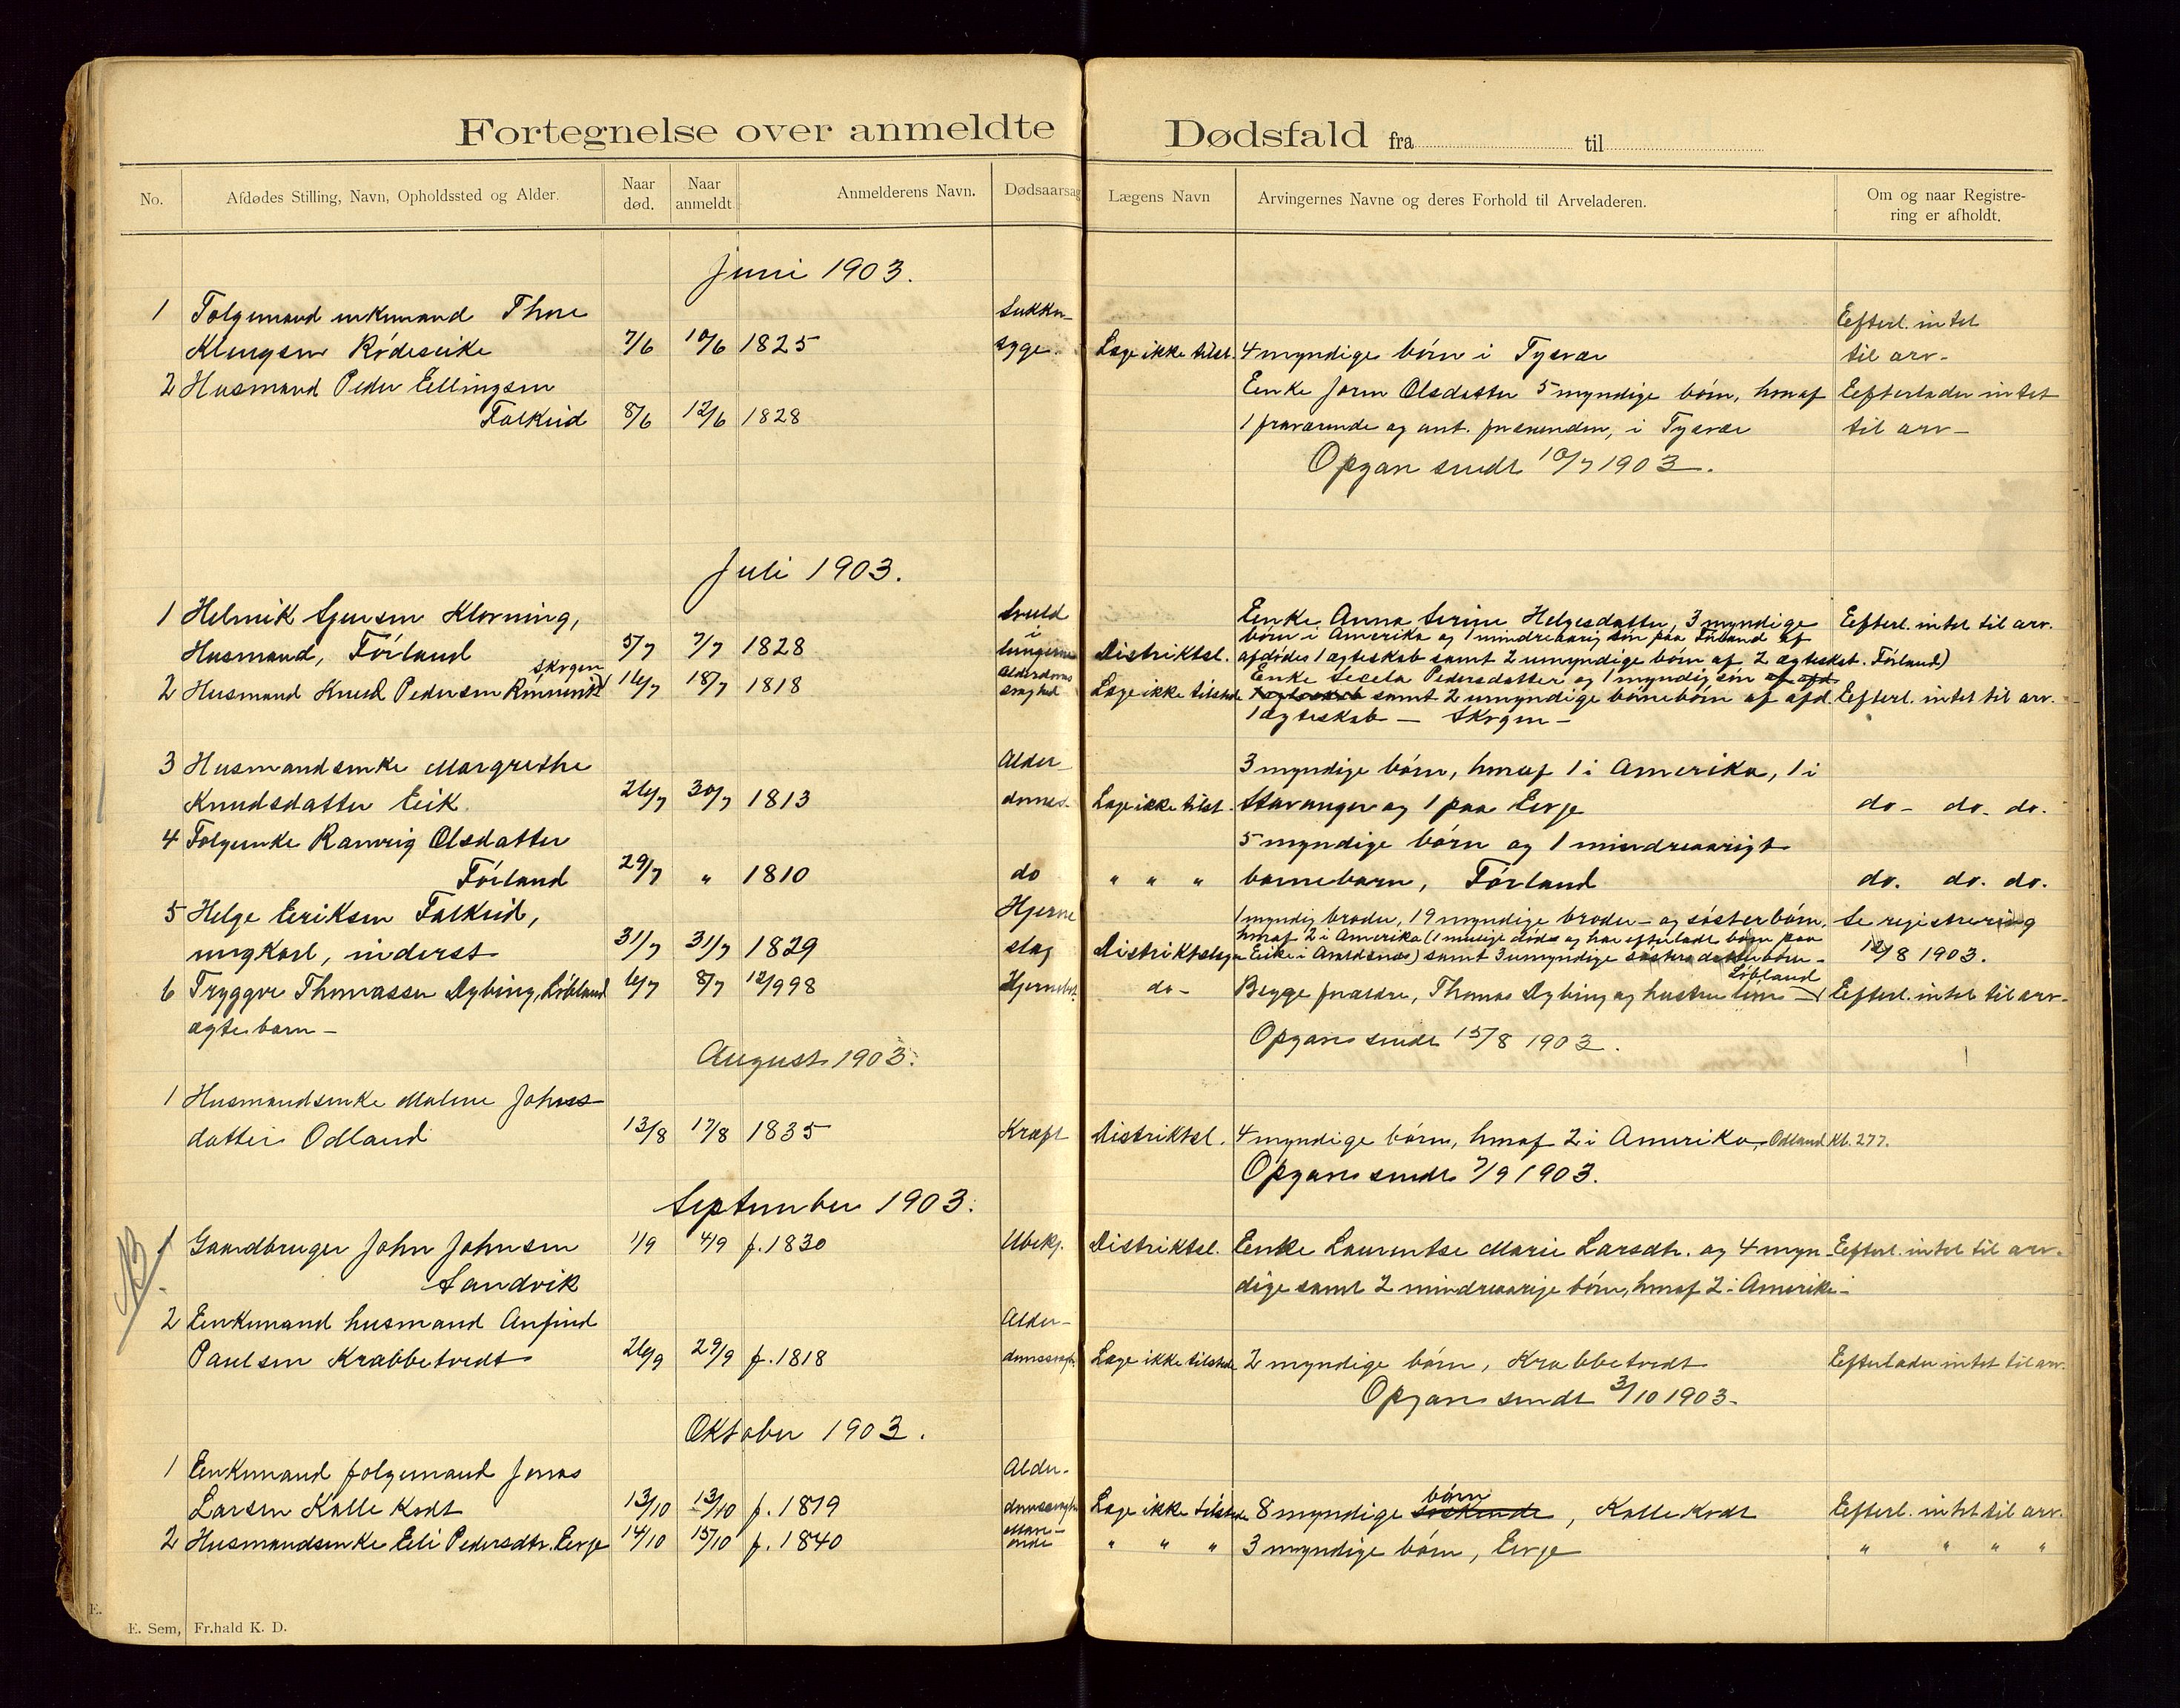 Fortegnelse over anmeldte Dødsfald fra til
No.
Afdødes Stilling, Navn, Opholdssted og Alder.
Naar død.
Naar anmeldt.
Anmelderens Navn.
Dødsaarsag
Lægens Navn
Arvingernes Navne og deres Forhold til Arveladeren.
Om og naar Registrering er afholdt.
Juni 1903.
1 Folgemand enkemand Thore Sukker- Efterl. intet
Klengsen Rødeseike 7/6 10/6 1825 syge. Læge ikke tilst. 4 myndige børn i Tysvær til arv-
2 Husmand Peder Eellingsen Eenke Jorun Olsdatter 5 myndige børn, hvoraf Eefterlader intet
Falkeid 8/6 12/6 1828 1 fraværende og ant. forsvunden, i Tysvær til arv-
Opgave sendt 10/7 1903.
Juli 1903.
1 Helmik Sjursen Klovning, Svuld Eenke Anna Serine Helgesdatter, 3 myndige Efterl. intet til arv.
i børn i Amerika og 1 mindreaarig søn paa Førland af
Husmand, Førland 5/7 7/7 1828 lungerne Distriktsl. afdødes 1 ægteskab samt 2 umyndige børn af 2 ægteskab. Førland)
Skogen Alderdoms Enke Secela Pedersdatter og 1 myndig søn af afd.
2 Husmand Knud Pedersen 16/7 18/7 1818 svaghed Læge ikke tilstede samt 2 umyndige børnebørn af afd. Efterl. intet til arv.
1 ægteskab - Skogen -
3 Husmandsenke Margrethe Alder- 3 myndige børn, hvoraf 1 i Amerika, 1 i
Knudsdatter Eeik 26/7 30/7 1813 doms- Læge ikke tilst. Stavanger og 1 paa Eevje do- do. do.
4 Folgeenke Ranveig Olsdatter 5 myndige børn og 1 mindreaarigt
Førland 29/7 " 1810 do " " " barnebarn, Førland do. do. do.
5 Helge Eeriksen Falkeid, Hjerne 1 myndig broder, 19 myndige broder- og søsterbørn, Se registrering
hvoraf 2 i Amerika (1 muligt død og har efterladt børn paa
ungkarl, inderst 31/7 31/7 1829 slag Distriktslægen Eeike i Avaldsnæs) samt 3 umyndige søsterdatterbørn - 12/8 1903.
Løbland
6 Tryggve Thomassen Dybing, Løbland 6/7 8/7 12/9 98 Hjernebet. do- Begge forældre, Thomas Dybing og hustru Efterl. intet til arv-
ægte barn - Opgave sendt 15/8 1903.
August 1903.
1 Husmandsenke Malene Johns
datter Odland 13/8 17/8 1835 Kræft Distriktsl. 4 myndige børn, hvoraf 2 i Amerika, Odland Kl. 277.
Opgave sendt 7/9 1903.
September 1903.
NB.
1 Gaardbruger John Johnsen 1/9 4/9 f. 1830 Ubekj. Distriktsl. Eenke Laurentse Marie Larsdtr. og 4 myn- Eefterl. intet til arv-
Sandvik dige samt 2 mindreaarige børn, hvoraf 2 i Amerika-
2 Eenkemand husmand Anfind Alder-
Paulsen Krabbetvedt 26/9 29/9 f. 1818 domssvagh. Læge ikke tilstede 2 myndige børn, Krabbetvedt Eefterlader intet til arv.
Opgave sendt 3/10 1903-
Oktober 1903.
1 Eenkemand folgemand Jonas Alder-
børn
Larsen Kallekodt 13/10 13/10 f. 1819 domssvaghed Læge ikke tilstede 8 myndige søskende, Kallekodt Eefterl. intet til arv.
2 Husmandsenke Eeli Pedersdtr. Eevje 14/10 15/10 f. 1840 Mave-onde " " " 3 myndige børn, Eevje " " " "
E. Sem, Fr.hald K. D.